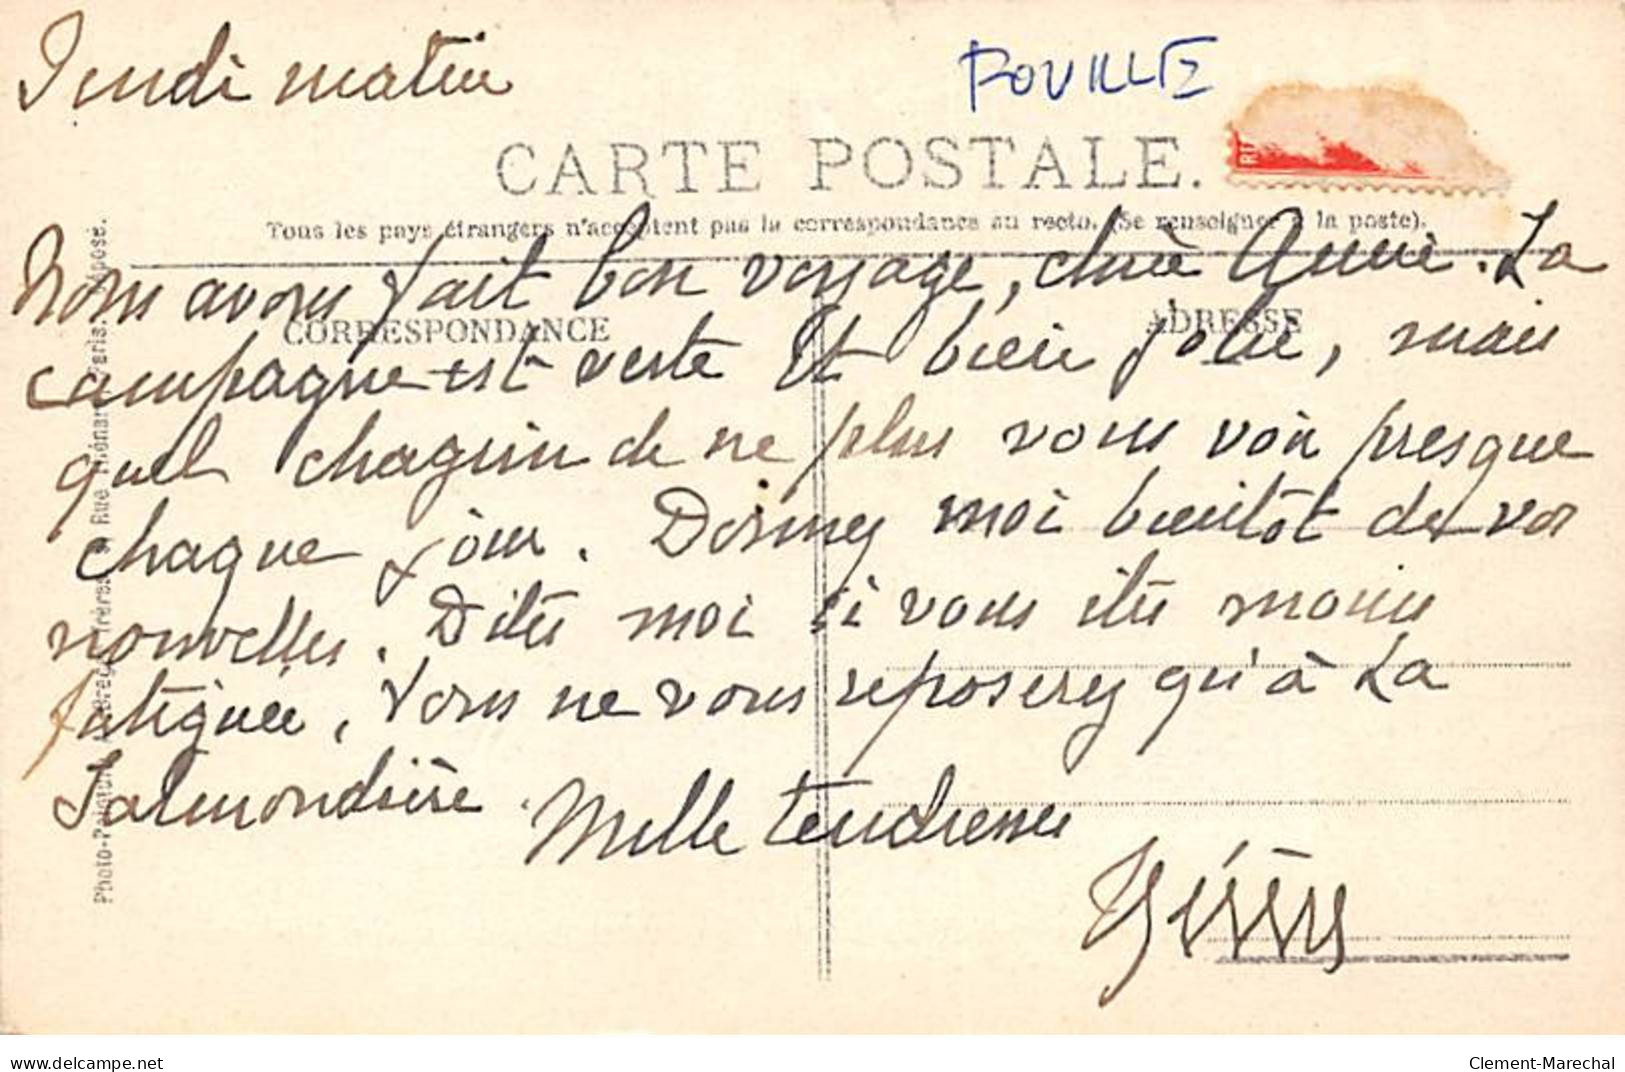 Jeudi matin
ROUILLÉ
CARTE POSTALE.
Tous les pays étrangers n'acceptent pas la correspondance au recto. (Se renseigner à la poste).
Nous avons fait bon voyage, chère Annie. La
CORRESPONDANCE
ADRESSE
campagne est verte et bien jolie, mais
quel chagrin de ne plus vous voir presque
chaque jour. Donnez moi bientôt de vos
nouvelles. Dites moi si vous êtes moins
fatiguée. Vous ne vous reposerez qu'à La
Salmondière. Mille tendresses
Photo-Peinture frères Rue Thénard Paris. Déposé.
delcampe.net
Clement-Marechal